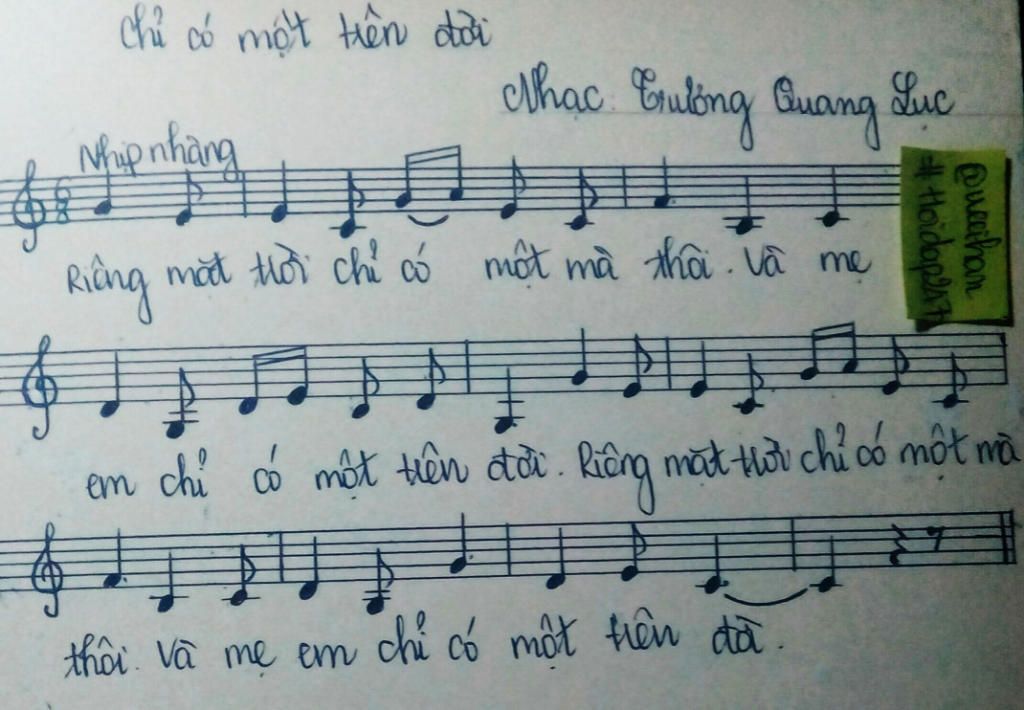 Chỉ có một trên đời
Nhạc: Trương Quang Lục
Nhịp nhàng
6
8
Riêng mặt trời chỉ có một mà thôi. Và mẹ
#Hoidap247
em chỉ có một trên đời. Riêng mặt trời chỉ có một mà
thôi. Và mẹ em chỉ có một trên đời.